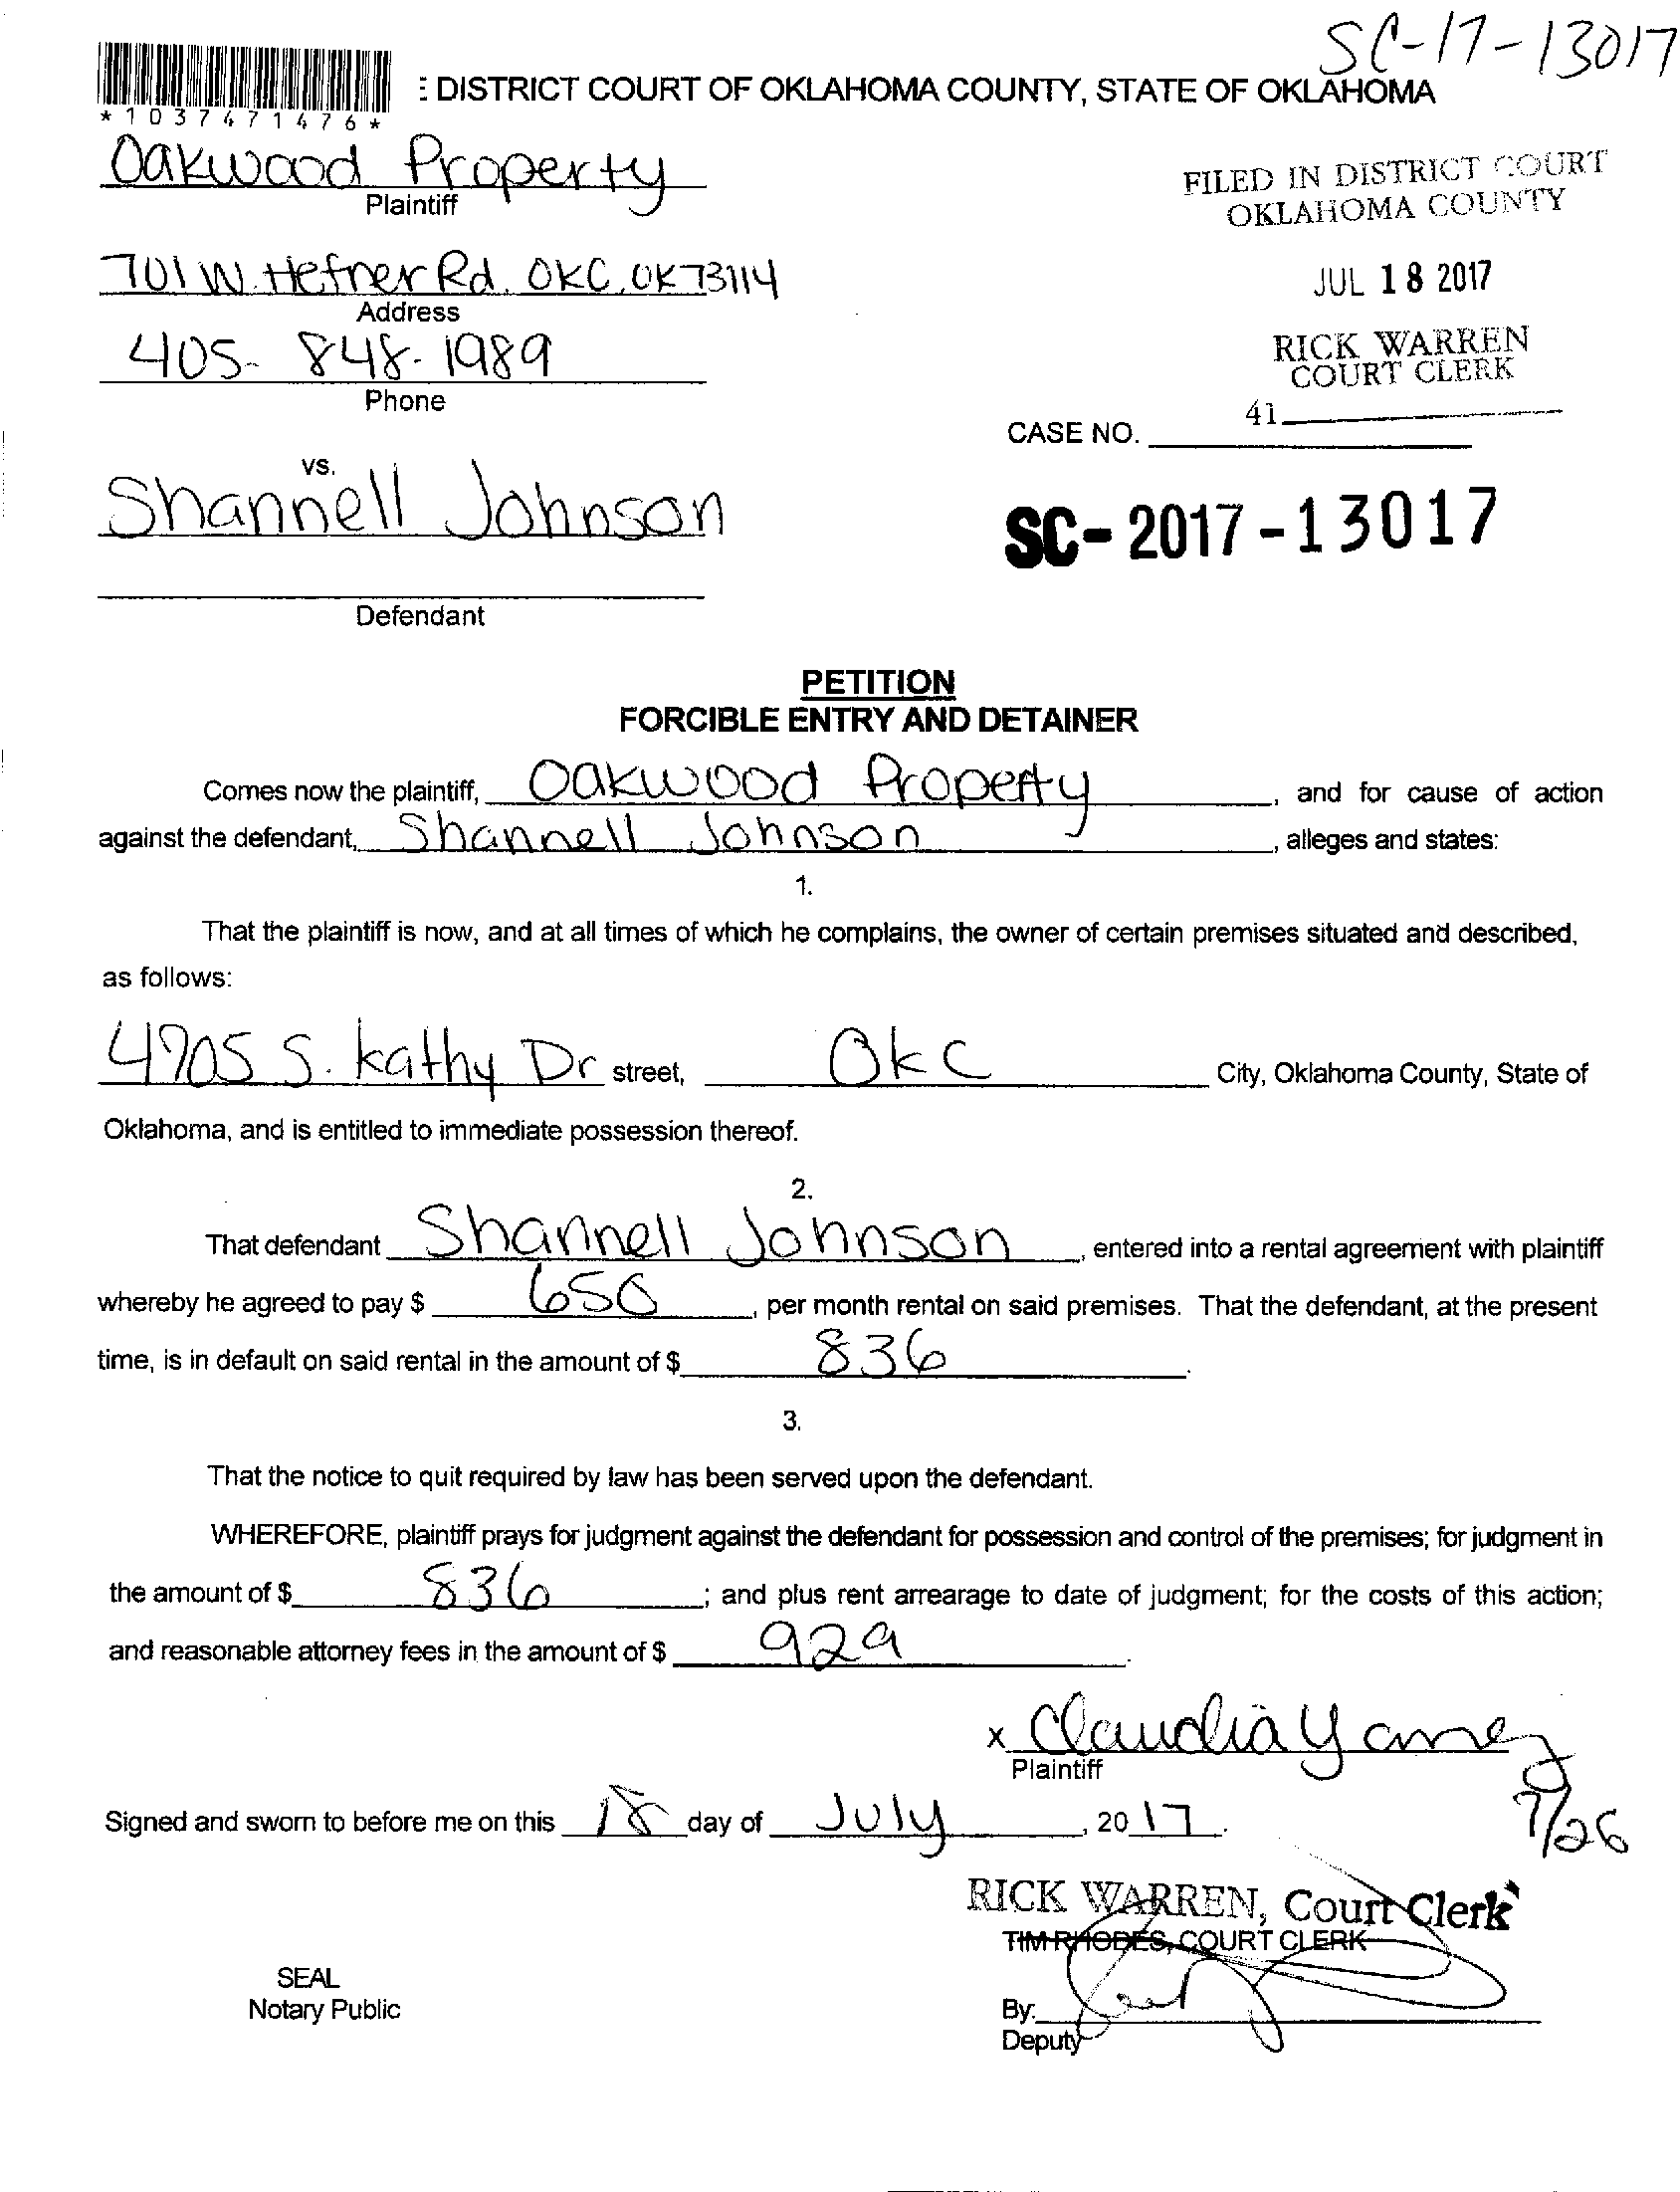 SC-17-13017
: DISTRICT COURT OF OKLAHOMA COUNTY, STATE OF OKLAHOMA
*1037471476*
Oakwood Property
Plaintiff
FILED IN DISTRICT COURT
OKLAHOMA COUNTY
701 W. Hefner Rd. OKC, OK 73114
Address
JUL 18 2017
405-848-1989
Phone
RICK WARREN
COURT CLERK
41
CASE NO.
vs.
Shannell Johnson
SC-2017-13017
Defendant
PETITION
FORCIBLE ENTRY AND DETAINER
Comes now the plaintiff, Oakwood Property, and for cause of action
against the defendant, Shannell Johnson, alleges and states:
1.
That the plaintiff is now, and at all times of which he complains, the owner of certain premises situated and described,
as follows:
4705 S. Kathy Dr street, OKC City, Oklahoma County, State of
Oklahoma, and is entitled to immediate possession thereof.
2.
That defendant Shannell Johnson, entered into a rental agreement with plaintiff
whereby he agreed to pay $ 650, per month rental on said premises. That the defendant, at the present
time, is in default on said rental in the amount of $ 836.
3.
That the notice to quit required by law has been served upon the defendant.
WHEREFORE, plaintiff prays for judgment against the defendant for possession and control of the premises; for judgment in
the amount of $ 836; and plus rent arrearage to date of judgment; for the costs of this action;
and reasonable attorney fees in the amount of $ 929.
x Claudia Yanez
Plaintiff
Signed and sworn to before me on this 18 day of July, 2017.
7/26
RICK WARREN, Court Clerk
TIM RHODES, COURT CLERK
SEAL
Notary Public
By:
Deputy